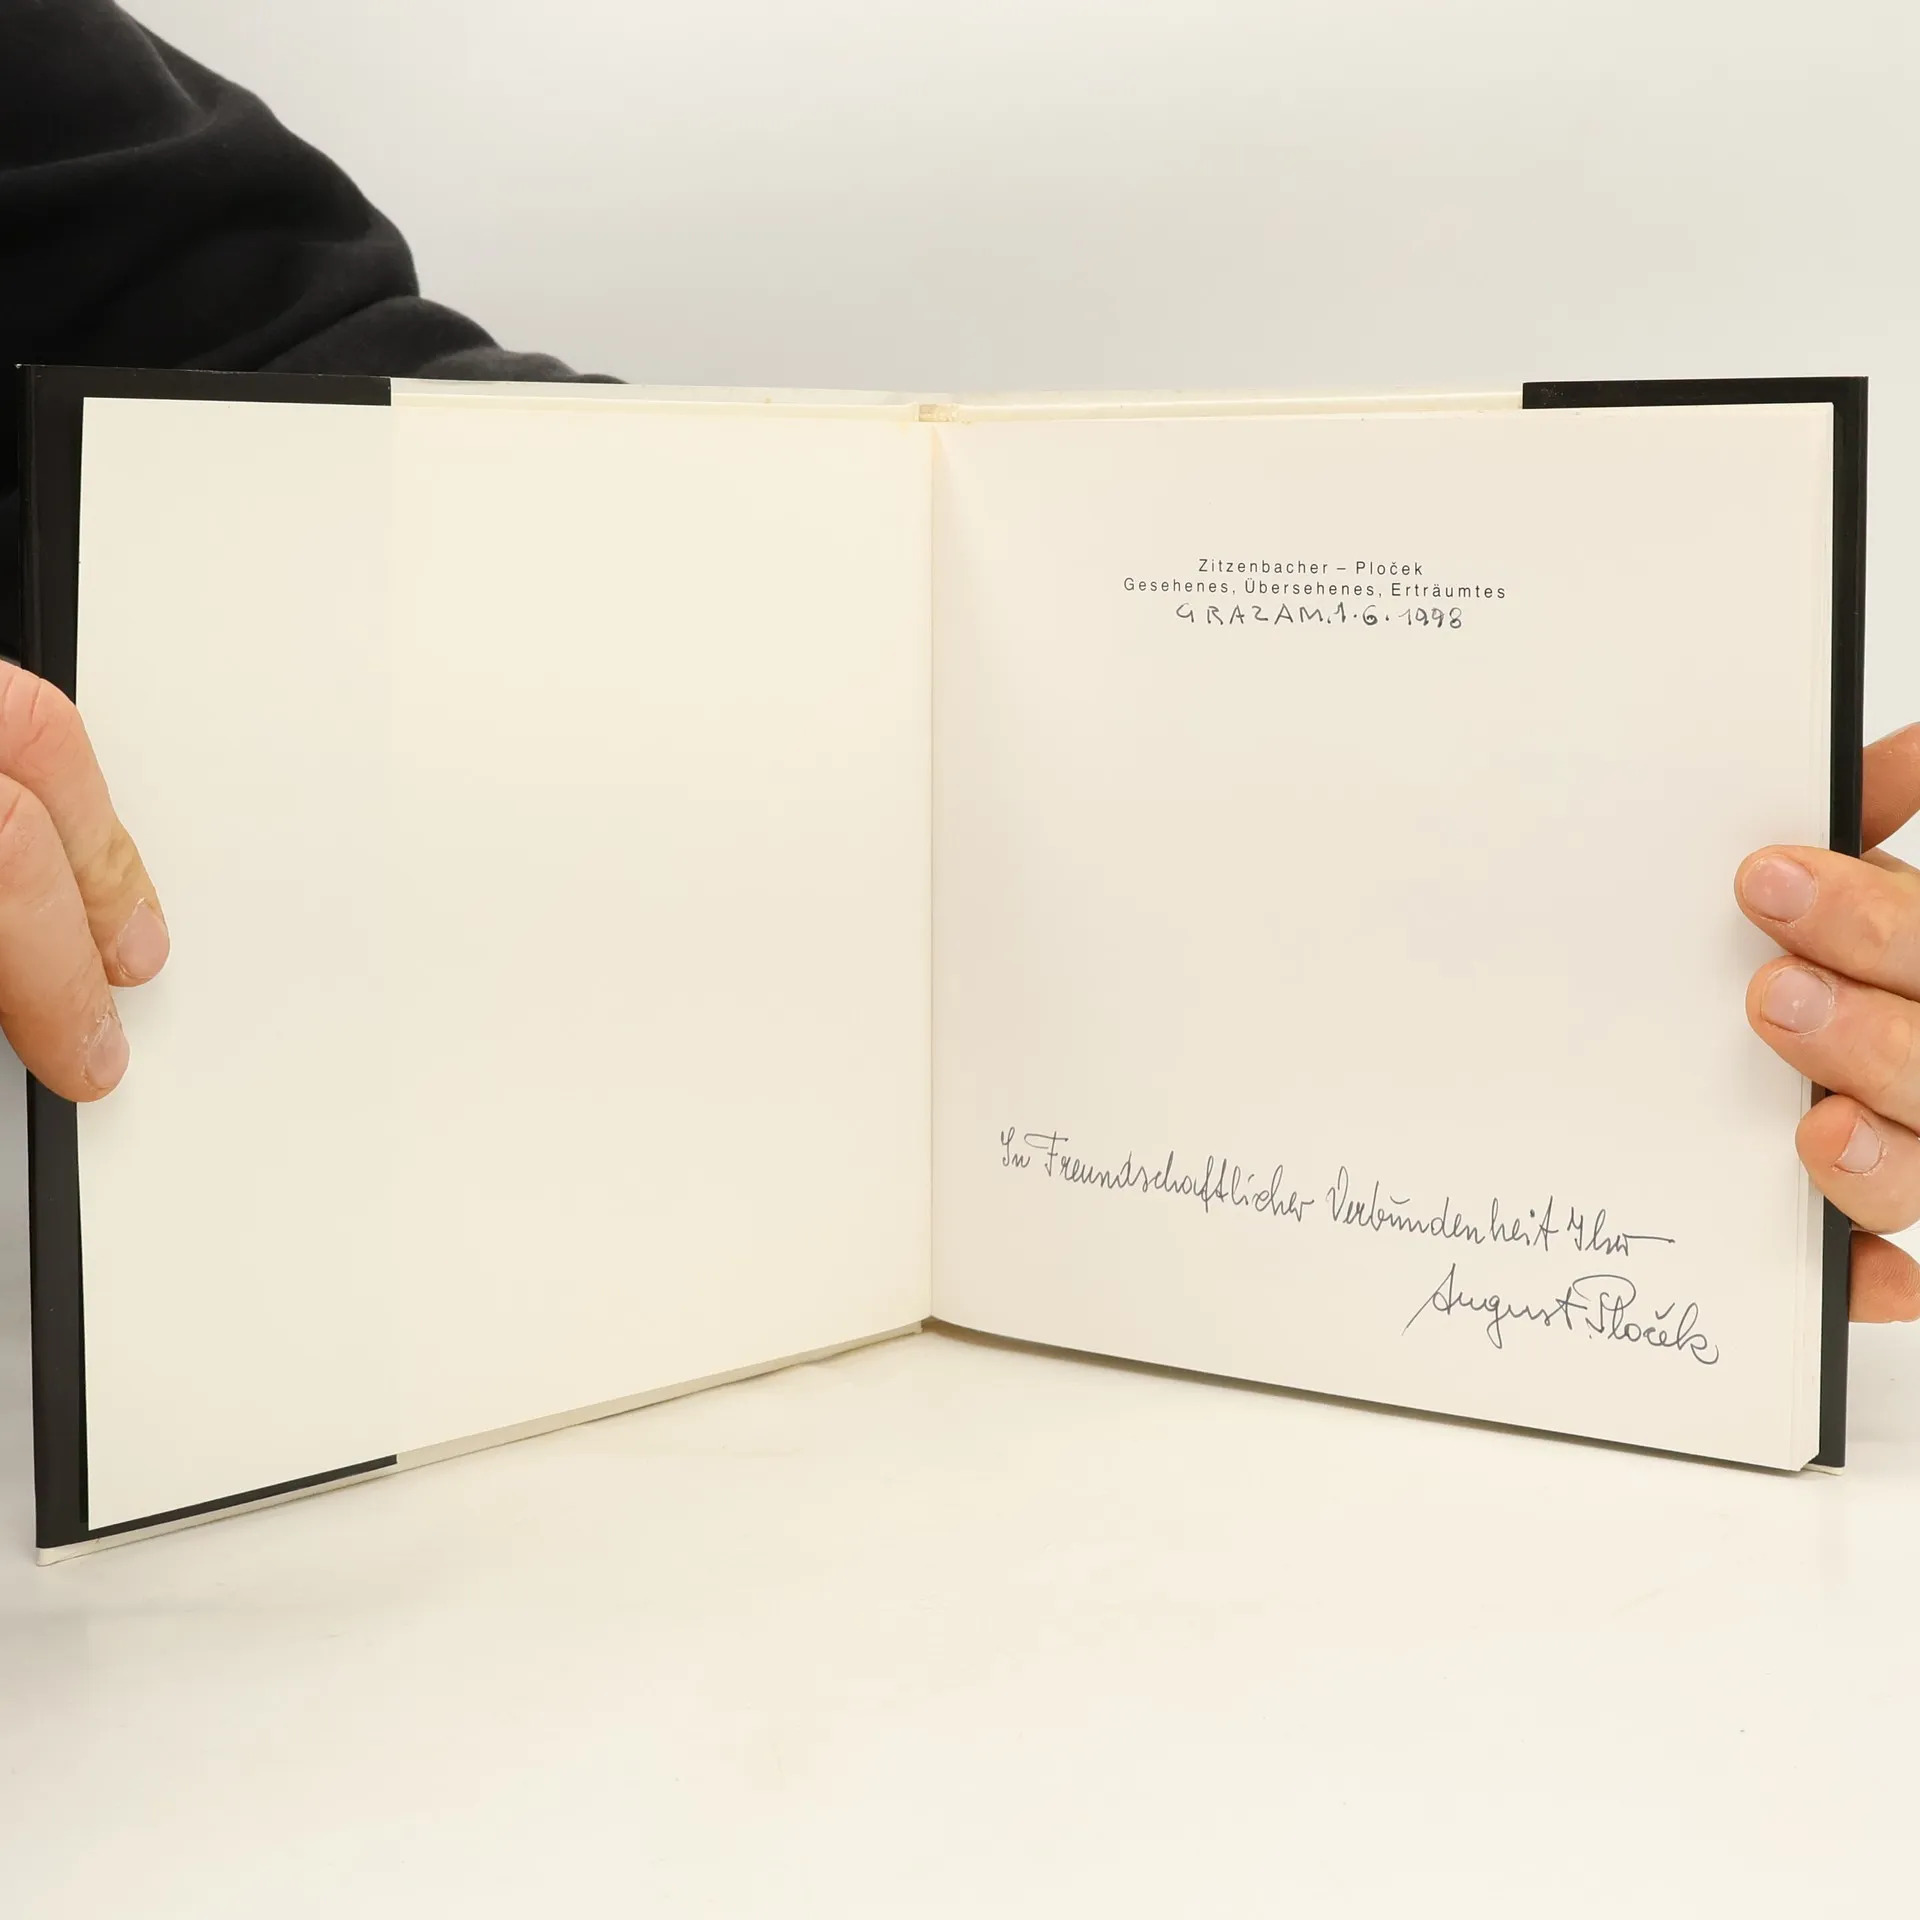 Zitzenbacher – Ploček
Gesehenes, Übersehenes, Erträumtes
GRAZ AM.1.6.1998
In Freundschaftlicher Verbundenheit Ihr
August Ploček